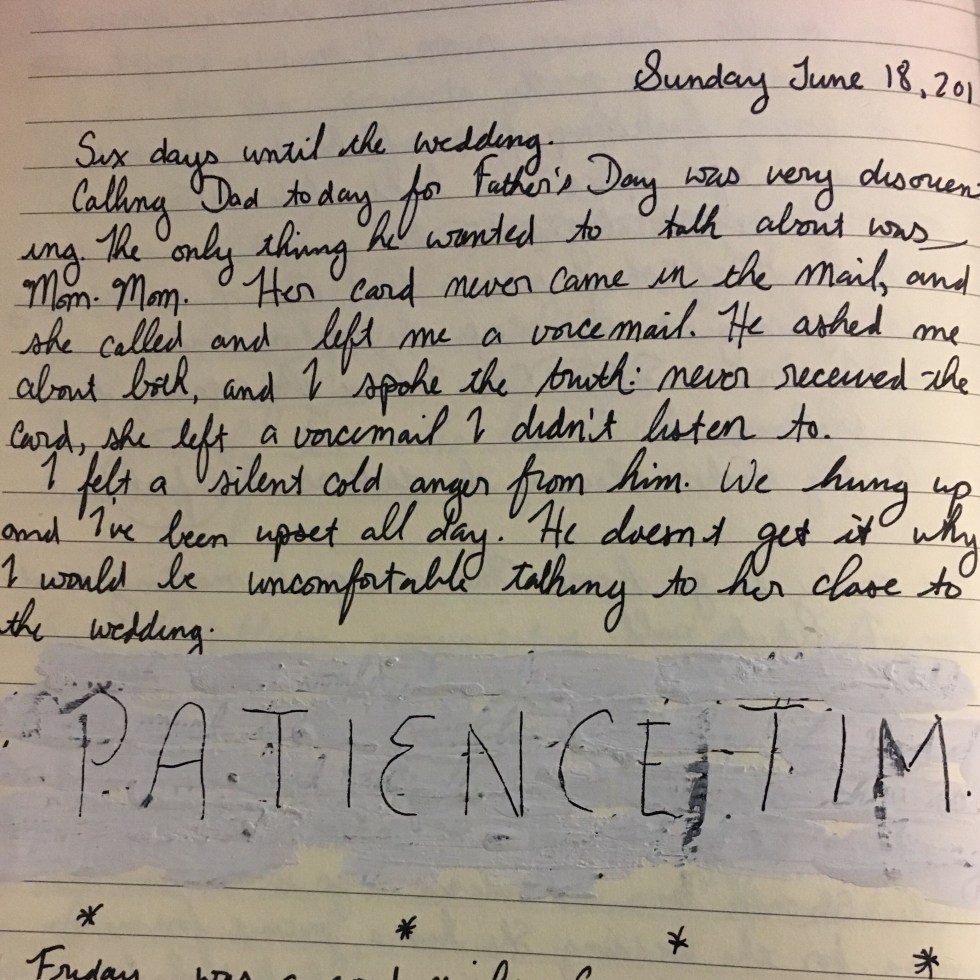 Sunday June 18, 201
Six days until the wedding.
Calling Dad today for Father's Day was very disorien-
ing. The only thing he wanted to talk about was
Mom. Mom. Her card never came in the mail, and
she called and left me a voicemail. He asked me
about both, and I spoke the truth: never received the
card, she left a voicemail I didn't listen to.
I felt a silent cold anger from him. We hung up
and I've been upset all day. He doesn't get it why
I would be uncomfortable talking to her close to
the wedding.
PATIENCE, TIM.
* * * *
Friday was a